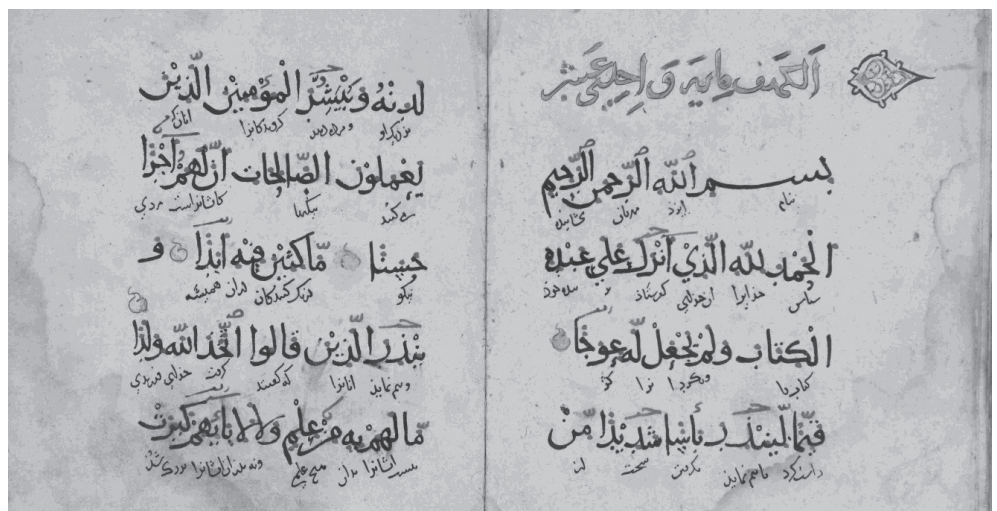 اَلْكَهْف مايَه وَ اِحدي عَشَر
بسم الله الرَّحمن الرَّحيم
بنام ايزد مهربان
اَلْحَمْدُ لِلّه الَّذِيْ اَنْزَلَ عَلي عَبْدِهِ
سپاس خدايرا ان خدايي كه فرستاد بر بنده خود
الْكِتَابَ وَلَمْ يَجْعَلْ لَّهُ عِوَجًا
كتاب را ونكرد او را كژ
قَيِّمًا لِّيُنْذِرَ بَأْسًا شَدِيْدًا مِّنْ
راست كرد تا بيم نمايد سخت
لَدُنْهُ وَيُبَشِّرُ الْمُؤْمِنِيْنَ الَّذِيْنَ
ومژده دهد كروندكانرا انان كه
يَعْمَلُوْنَ الصَّالِحَاتِ اَنَّ لَهُمْ اَجْرًا
مي كنند نيكيها كه ايشانراست مزدي
حَسَنًا مَّاكِثِيْنَ فِيْهِ اَبَدًا وَ
نيكو درنك كنندكان اندران هميشه
يُنْذِرَ الَّذِيْنَ قَالُوا اتَّخَذَ اللّهُ وَلَدًا
وبيم نمايد انانرا كه كفتند كرفت خداي فرزندي
مَّا لَهُمْ بِهِ مِنْ عِلْمٍ وَلَا لِابَائِهِمْ كَبُرَتْ
نيست ايشانرا بدان هيچ علم ونه پدران ايشانرا